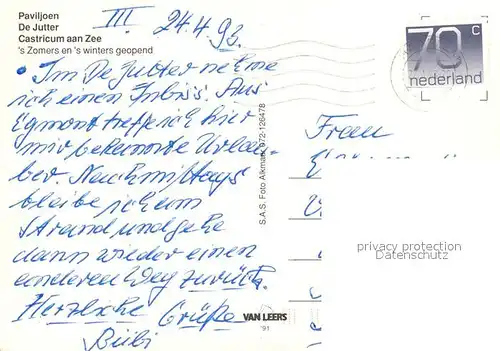 Paviljoen
De Jutter
Castricum aan Zee
's Zomers en 's winters geopend
III. 24.4.93.
• Im De Jutter nehme
ich einen Imbiss. Aus
Egmont treffe ich hier
mir bekannte Urlau-
ber. Nachmittags
bleibe ich am
Strand und gehe
dann wieder einen
anderen Weg zurück.
Herzliche Grüße
Bibi
S.A.S. Foto Alkmaar 072-126478
VAN LEERS
'91
70 c
nederland
Frau
privacy protection
Datenschutz